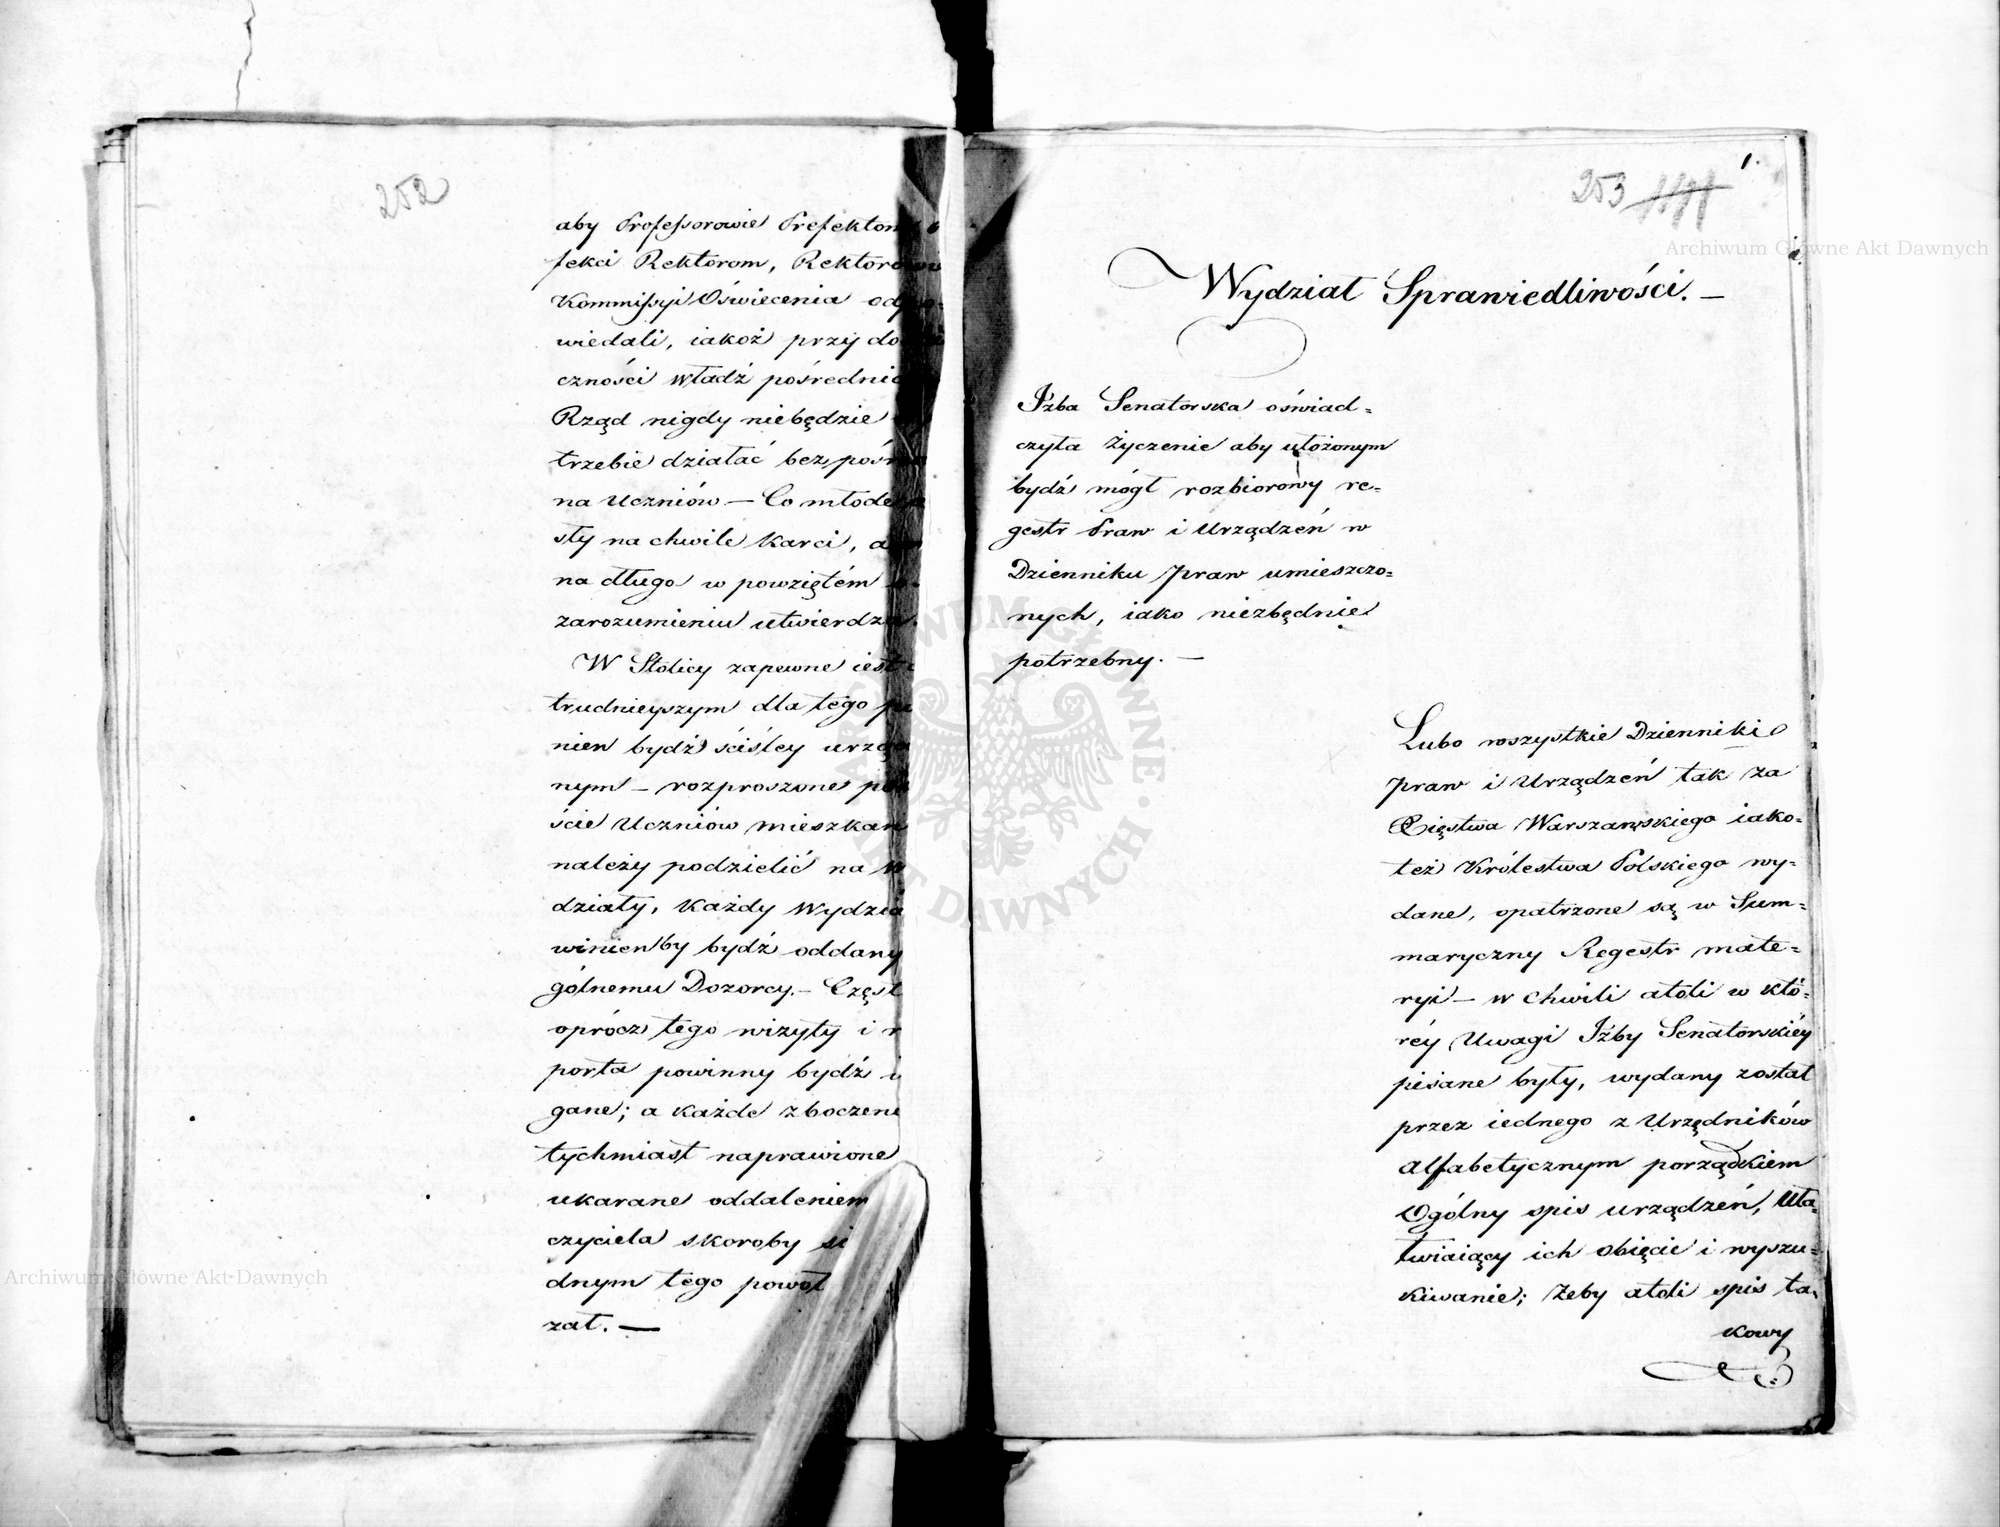 252
aby Professorowie Prefektom
fekci Rektorom, Rektoro
Kommissyi Oświecenia od
wiedali, iakoż przy do
czności władz pośredni
Rząd nigdy niebędzie
trzebie działać bezpoś
na Uczniów — Co młode
sły na chwile karci, a
na długo w powziętém
zarozumieniu utwierdza
W Stolicy zapewne iest
trudnieyszym dla tego
nien bydź ściśley urzą
nym — rozproszone po
ście Uczniów mieszkan
należy podzielić na
działy, każdy Wydzia
winienby bydź oddany
gólnemu Dozorcy. — Częst
oprócz tego wizyty i r
porta powinny bydź
gane; a każde zboczeni
tychmiast naprawione
ukarane oddaleniem
czyciela skoroby si
dnym tego powoł
zał. —
253
1.
Wydział Sprawiedliwości. —
Izba Senatorska oświad=
czyła Życzenie aby ułożonym
bydź mógł rozbiorowy re=
gestr Praw i Urządzeń w
Dzienniku Praw umieszczo=
nych, iako niezbędnie
potrzebny. —
Lubo wszystkie Dzienniki
Praw i Urządzeń tak za
Xięstwa Warszawskiego iako=
też Królestwa Polskiego wy=
dane, opatrzone są w Sum=
maryczny Regestr mate=
ryi — w chwili atoli w któ=
réy Uwagi Izby Senatorskiéy
pisane były, wydany został
przez iednego z Urzędników
Alfabetycznym porządkiem
Ogólny spis urządzeń, Uła=
twiaiący ich obięcie i wyszu=
kiwanie; Żeby atoli spis ta=
kowy
Archiwum Główne Akt Dawnych
Archiwum Główne Akt Dawnych
ARCHIWUM GŁÓWNE AKT DAWNYCH